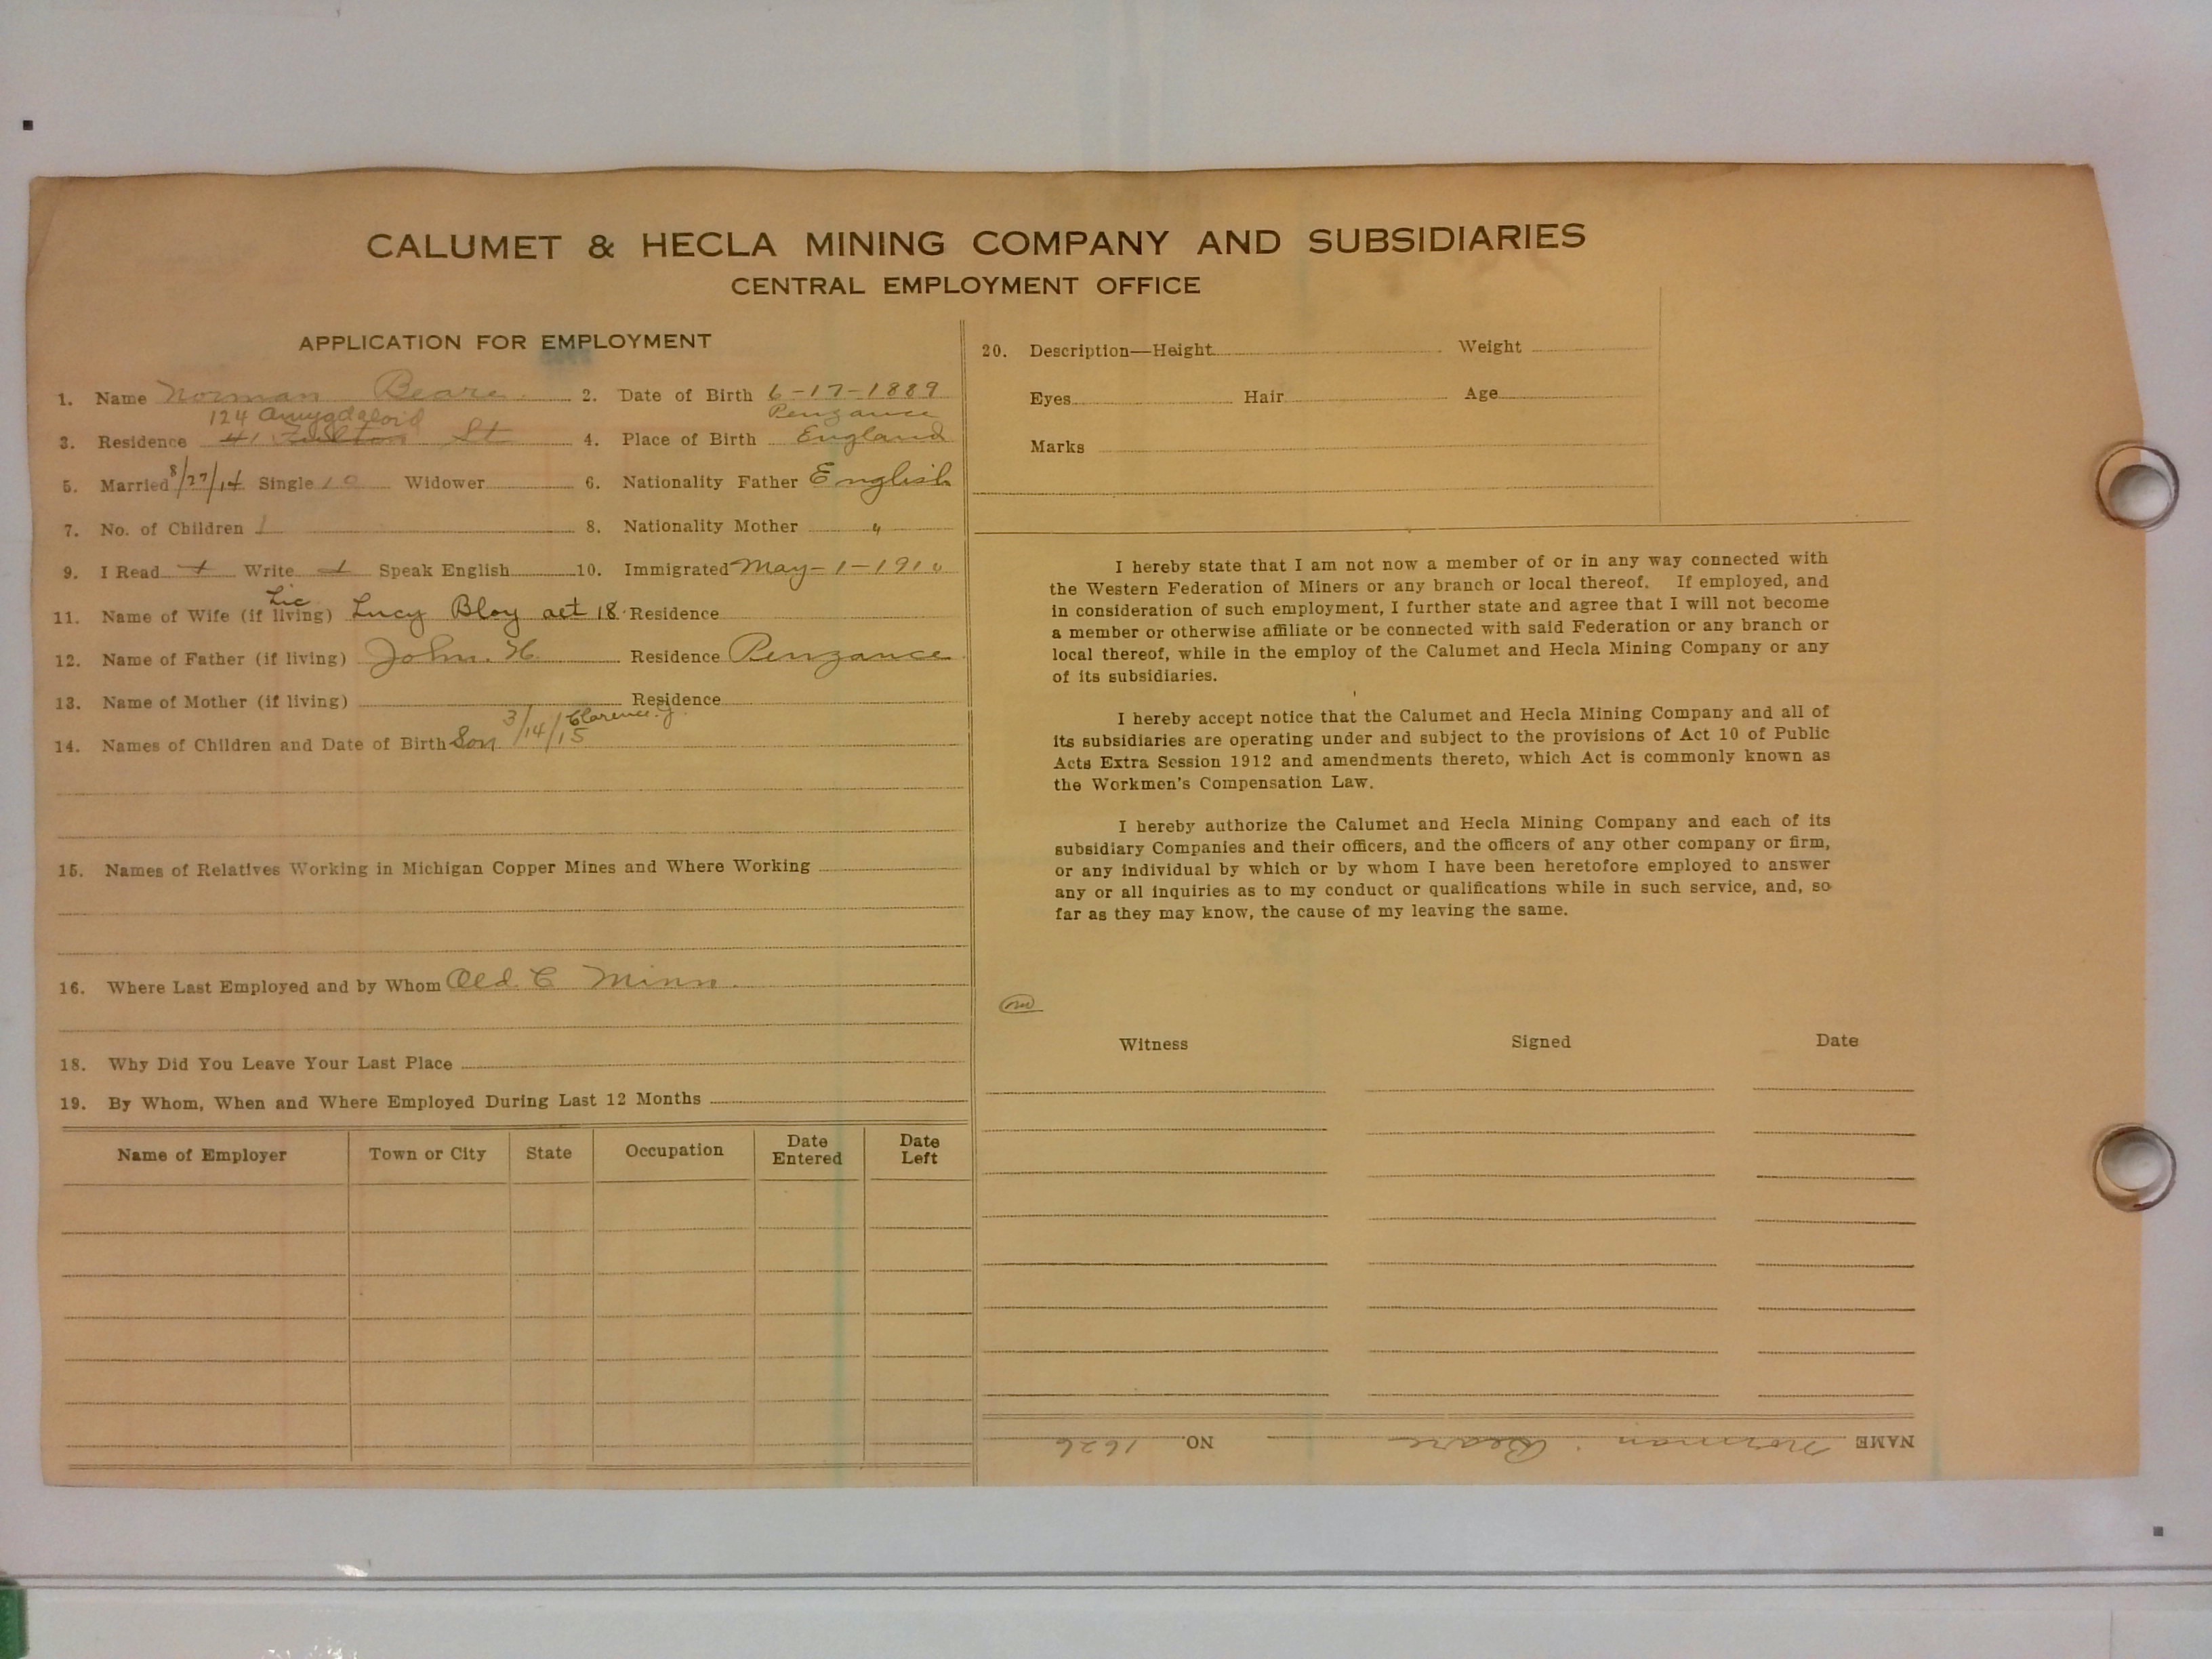 CALUMET & HECLA MINING COMPANY AND SUBSIDIARIES
CENTRAL EMPLOYMENT OFFICE
APPLICATION FOR EMPLOYMENT
1. Name Norman Beare 2. Date of Birth 6-17-1889
124 Amygdaloid Penzance
3. Residence 41 Fulton St 4. Place of Birth England
5. Married 8/27/14 Single Widower 6. Nationality Father English
7. No. of Children 1 8. Nationality Mother "
9. I Read Write Speak English 10. Immigrated May-1-1910
Lic
11. Name of Wife (if living) Lucy Bloy aet 18 Residence
12. Name of Father (if living) John. H. Residence Penzance
13. Name of Mother (if living) Residence
Clarence. J.
14. Names of Children and Date of Birth Son 3/14/15
15. Names of Relatives Working in Michigan Copper Mines and Where Working
16. Where Last Employed and by Whom Old. C Minn.
18. Why Did You Leave Your Last Place
19. By Whom, When and Where Employed During Last 12 Months
Name of Employer Town or City State Occupation Date Entered Date Left
20. Description—Height Weight
Eyes Hair Age
Marks
I hereby state that I am not now a member of or in any way connected with
the Western Federation of Miners or any branch or local thereof. If employed, and
in consideration of such employment, I further state and agree that I will not become
a member or otherwise affiliate or be connected with said Federation or any branch or
local thereof, while in the employ of the Calumet and Hecla Mining Company or any
of its subsidiaries.
I hereby accept notice that the Calumet and Hecla Mining Company and all of
its subsidiaries are operating under and subject to the provisions of Act 10 of Public
Acts Extra Session 1912 and amendments thereto, which Act is commonly known as
the Workmen's Compensation Law.
I hereby authorize the Calumet and Hecla Mining Company and each of its
subsidiary Companies and their officers, and the officers of any other company or firm,
or any individual by which or by whom I have been heretofore employed to answer
any or all inquiries as to my conduct or qualifications while in such service, and, so
far as they may know, the cause of my leaving the same.
Witness Signed Date
NAME Norman Beare NO. 1626